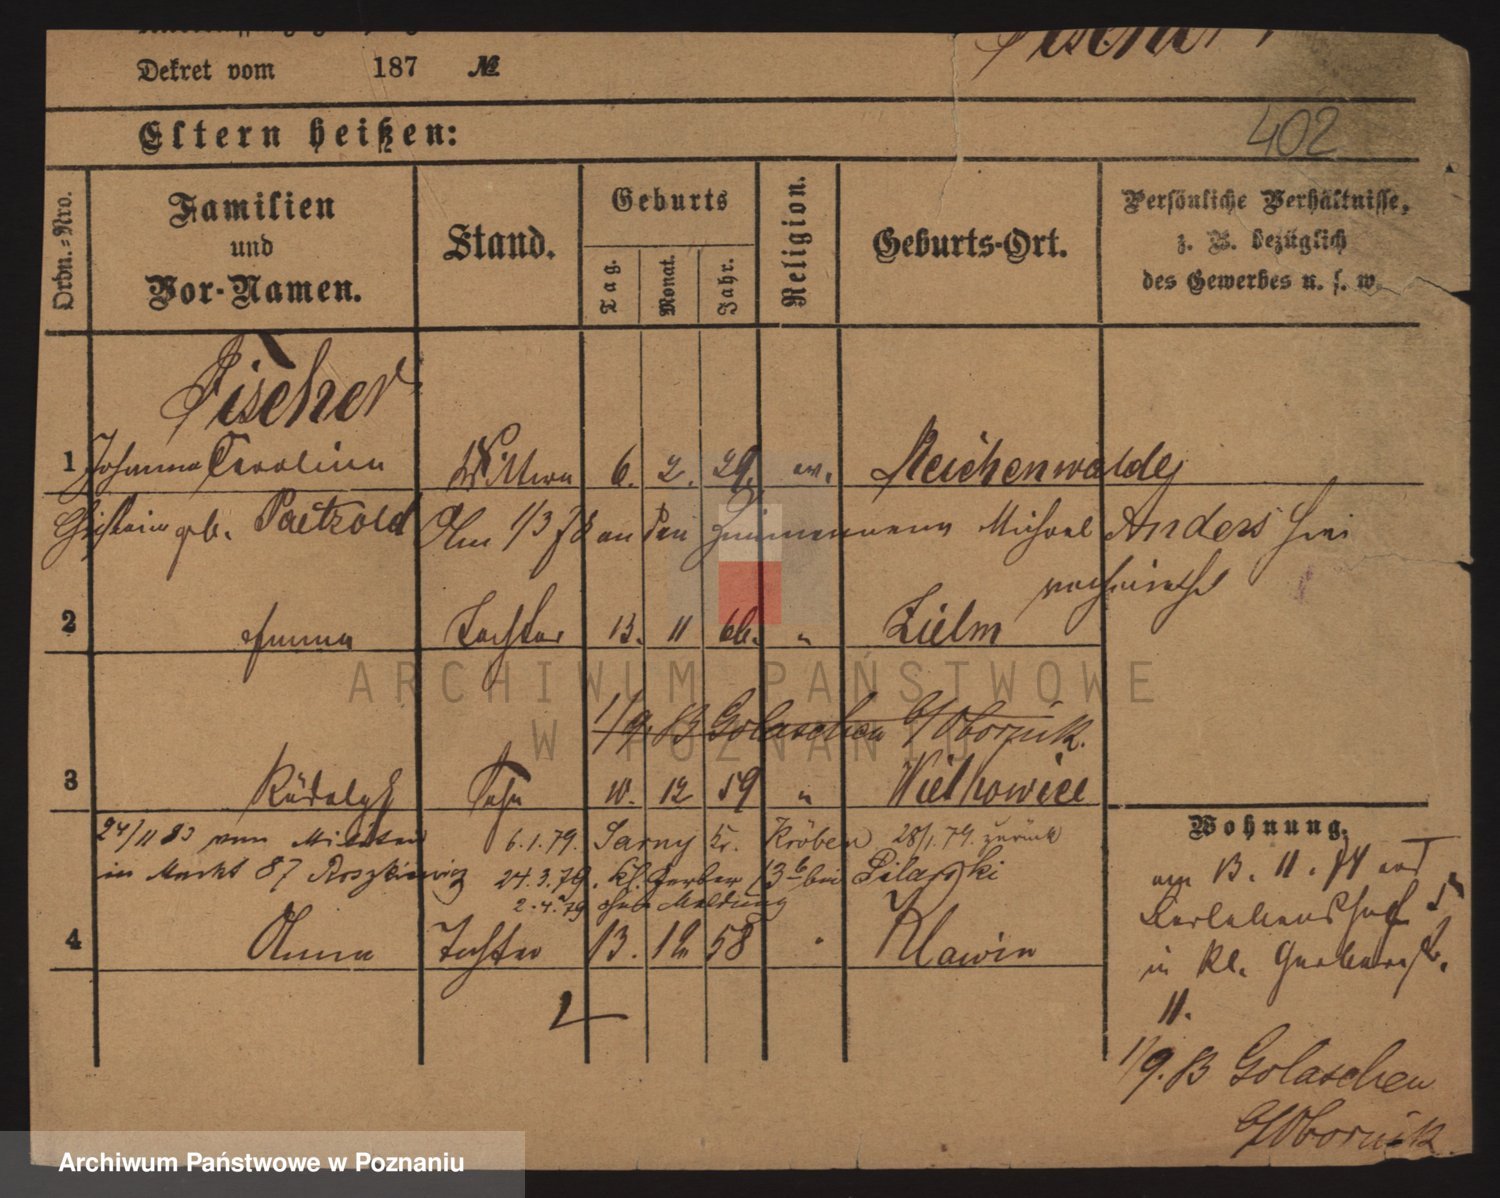 Dekret vom 187 №
Fischer
402
Eltern heißen:
Ordn.-Nro.
Familien
und
Vor-Namen.
Stand.
Geburts
Tag.
Monat.
Jahr.
Religion.
Geburts-Ort.
Persönliche Verhältnisse,
z. B. bezüglich
des Gewerbes u. s. w.
Fischer
1 Johanna Carolina Wittwe 6. 2. 29. ev. Reichenwalde
Christine geb. Paetzold Am 1/3 78 an den Zimmermann Michael Anders hier
verheirathet
2 Emma Tochter 13. 11 66. " Zielm
1/9. 83 Golaschen b/Obornik.
3 Rudolph Sohn 10. 12 59 " Wielkowice
24/11 83 vom Militair 6.1.79. Sarny Kr. Kröben 28/1.79. zurück
in Markt 87 Roszkiewicz 24.3.79. kl. Gerber 13 b bei Pilarski
2.4.79 ohne Meldung
4 Anna Tochter 13. 12 58 " Klawin
Wohnung.
am 13. 11. 74
in kl. Gerberstr.
11.
1/9. 83 Golaschen
b/Obornik
ARCHIWUM PAŃSTWOWE
W POZNANIU
Archiwum Państwowe w Poznaniu